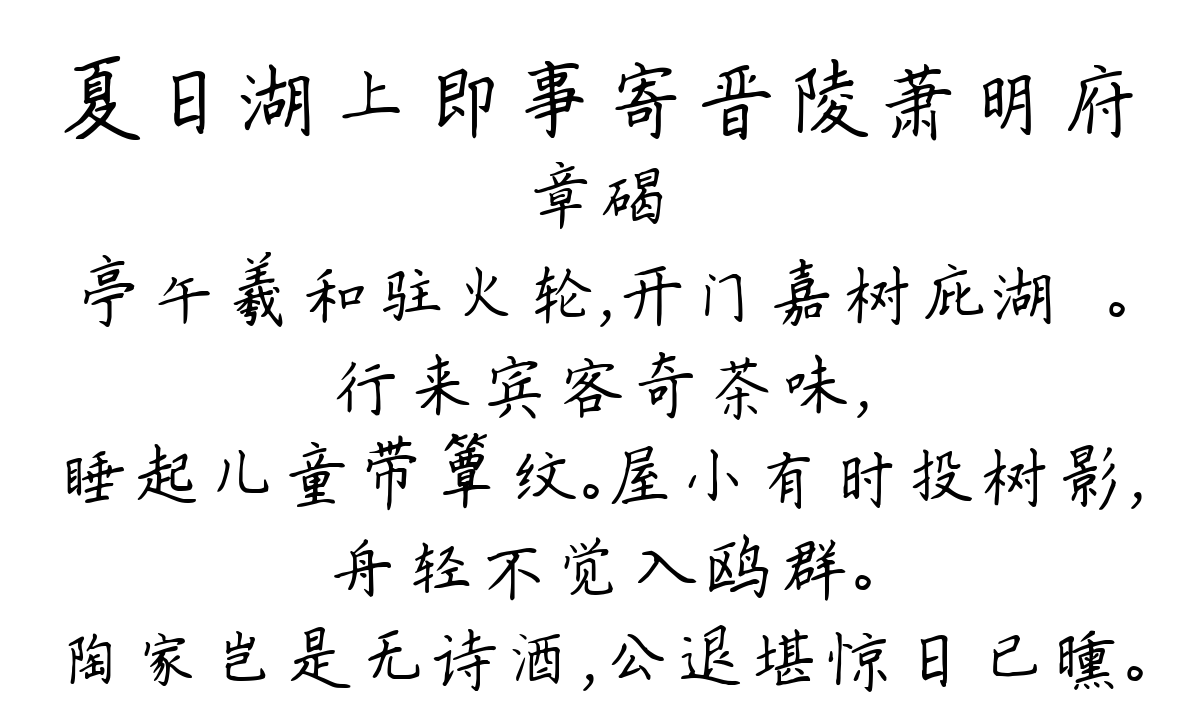 夏日湖上即事寄晋陵萧明府
章碣
亭午羲和驻火轮,开门嘉树庇湖 。
行来宾客奇茶味,
睡起儿童带簟纹。屋小有时投树影,
舟轻不觉入鸥群。
陶家岂是无诗酒,公退堪惊日已曛。